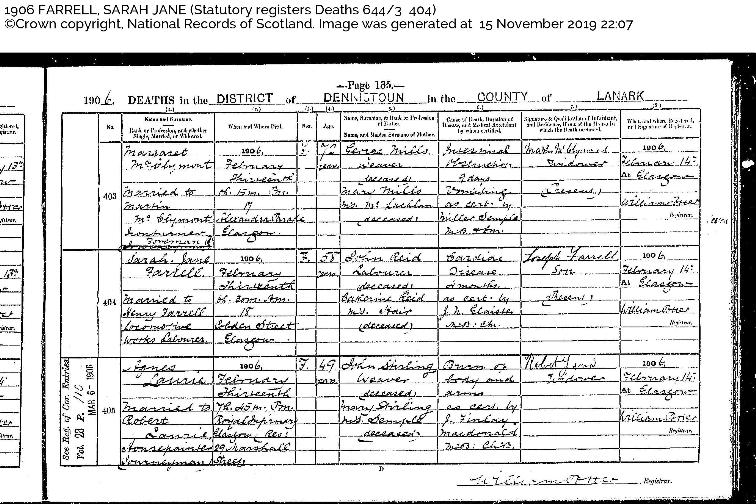 1906 FARRELL, SARAH JANE (Statutory registers Deaths 644/3 404)
©Crown copyright, National Records of Scotland. Image was generated at 15 November 2019 22:07
—Page 135.—
1906. DEATHS in the DISTRICT of DENNISTOUN in the COUNTY of LANARK
No.
Name and Surname.
Rank or Profession, and whether Single, Married, or Widowed.
When and Where Died.
Sex.
Age.
Name, Surname, & Rank or Profession of Father.
Name, and Maiden Surname of Mother.
Cause of Death, Duration of Disease, and Medical Attendant by whom certified.
Signature & Qualification of Informant, and Residence, if out of the House in which the Death occurred.
When and where Registered, and Signature of Registrar.
403
Margaret
McClymont
Married to
Martin
McClymont
Foreman
1906.
February
Thirteenth
17
Alexandra Parade
Glasgow
years
George Mills
Weaver
(deceased)
Mary Mills
(deceased)
Intestinal
Obstruction
9 days
Vomiting
as cert. by
Miller Semple
Widower
(Present)
1906.
February 14th
At Glasgow
William
Registrar.
404
Sarah Jane
Farrell
Married to
Henry Farrell
Locomotive
Works Labourer
1906.
February
Thirteenth
18
Street
Glasgow
F.
58
years
John Reid
Labourer
(deceased)
Catherine Reid
M.S. Hair
(deceased)
Cardiac
Disease
months
as cert. by
Joseph Farrell
Son
(Present)
1906.
February 14th
At Glasgow
William
Registrar.
405
See Reg. of Cor. Entries
Vol. 23 P. 110
MAR 6 - 1906
Agnes
Laurie
Married to
Robert
Laurie
Housepainter
Journeyman
1906.
February
Thirteenth
Royal Infirmary
Glasgow Res:
29 Marshall
Street
F.
49
years
John Stirling
Weaver
(deceased)
Mary Stirling
M.S. Semple
(deceased)
Burn of
body and
arms
as cert. by
J. Finlay
Macdonald
Widower
1906.
February 14th
At Glasgow
William
Registrar.
William
Registrar.